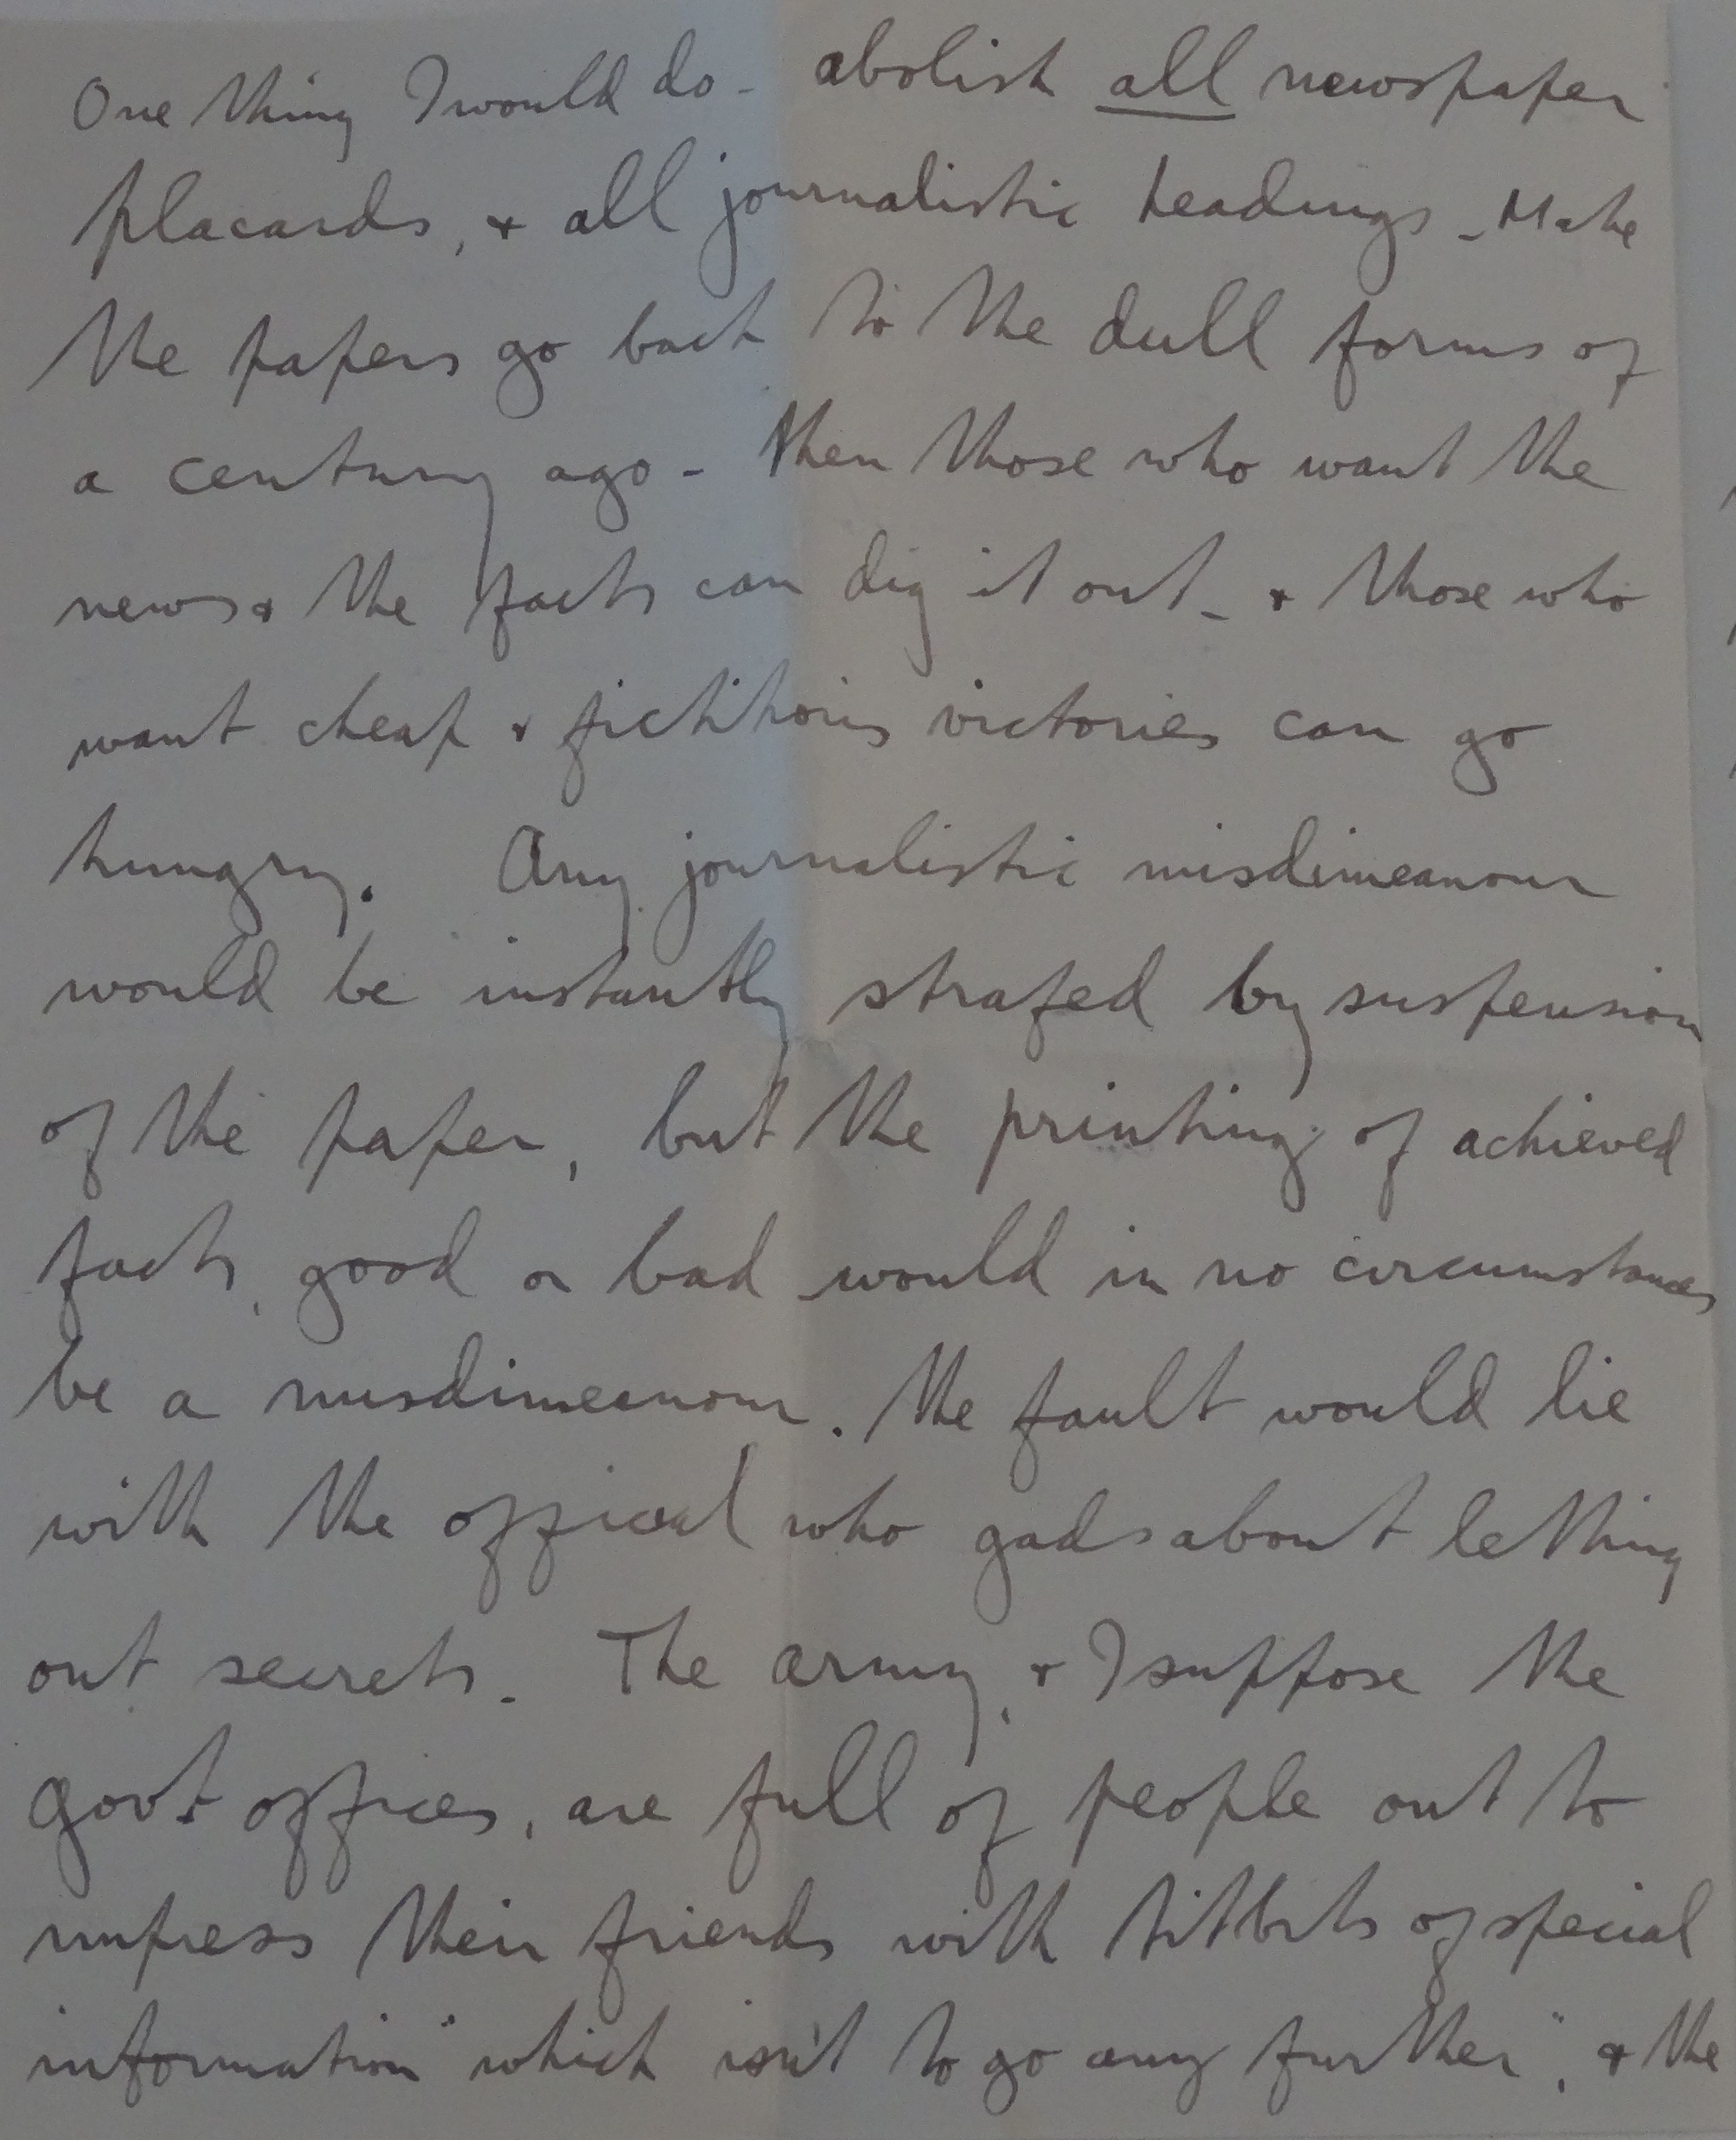 One thing I would do - abolish all newspaper
placards, & all journalistic headings - Make
the papers go back to the dull forms of
a century ago - Then those who want the
news & the facts can dig it out - & those who
want cheap & fictitious victories can go
hungry. Any journalistic misdimeanour
would be instantly strafed by suspension
of the paper, but the printing of achieved
facts, good or bad would in no circumstances
be a misdimeanour. The fault would lie
with the official who gads about letting
out secrets. The army, & I suppose the
govt offices, are full of people out to
impress their friends with titbits of special
information "which isn't to go any further", & the